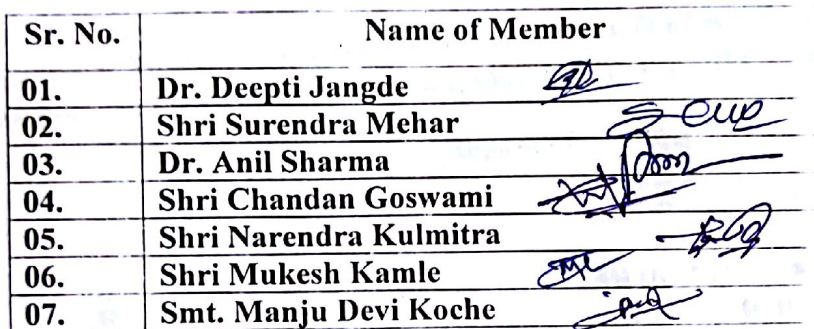 Sr. No. Name of Member
01. Dr. Deepti Jangde
02. Shri Surendra Mehar
03. Dr. Anil Sharma
04. Shri Chandan Goswami
05. Shri Narendra Kulmitra
06. Shri Mukesh Kamle
07. Smt. Manju Devi Koche